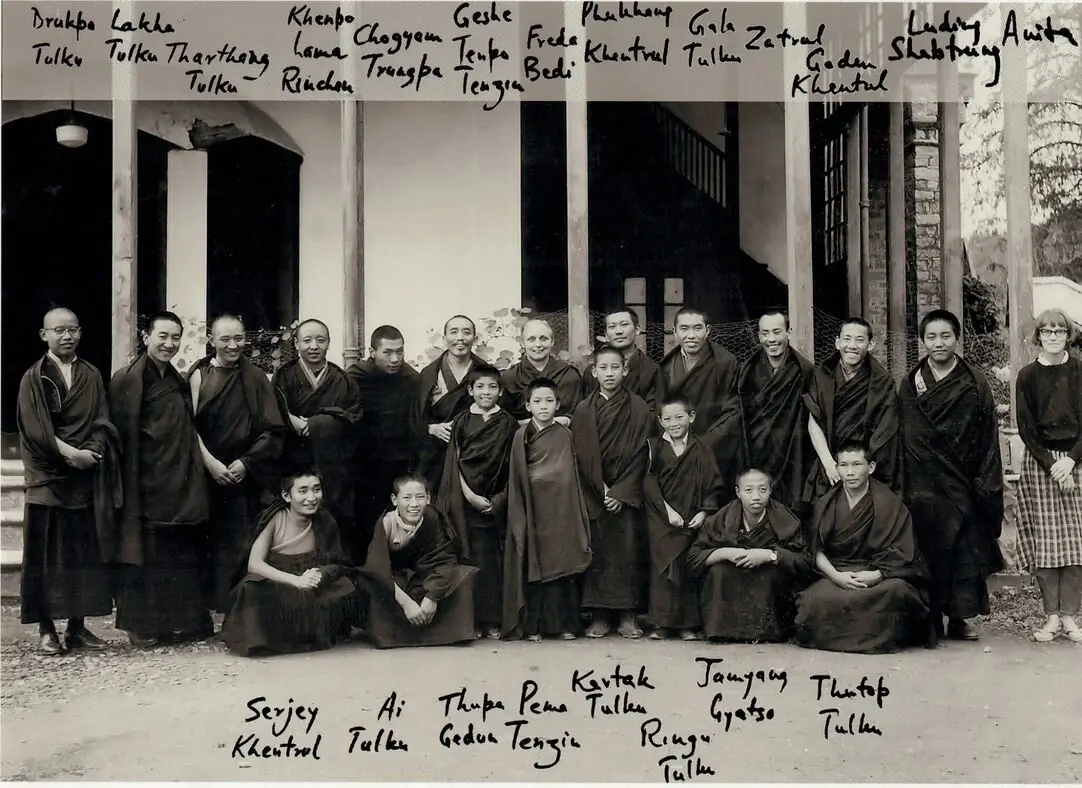 Drukpa
Tulku
Lakha
Tulku
Tharthang
Tulku
Khenpo
Lama
Rinchen
Chogyam
Trungpa
Geshe
Tenpa
Tengin
Freda
Bedi
Phukhang
Khentrul
Gala
Tulku
Zatrul
Goden
Khentrul
Luding
Shabtrung
Anita
Serjey
Khentrul
Ai
Tulku
Thupa
Gedun
Pema
Tenzin
Kartak
Tulku
Ringu
Tulku
Jamyang
Gyatso
Thutop
Tulku